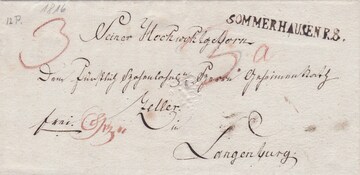 1816
12 P.
SOMMERHAUSEN R.3.
3
Seiner Hochwohlgeborn
Dem Fürstlich Hohenlohe Herrn Geheimen Rath
Zeller
in
frei.
Langenburg.